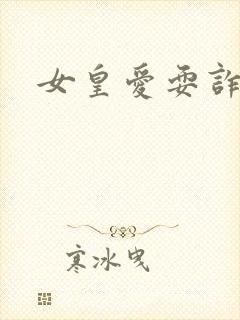 女皇愛耍詐
寒冰曳